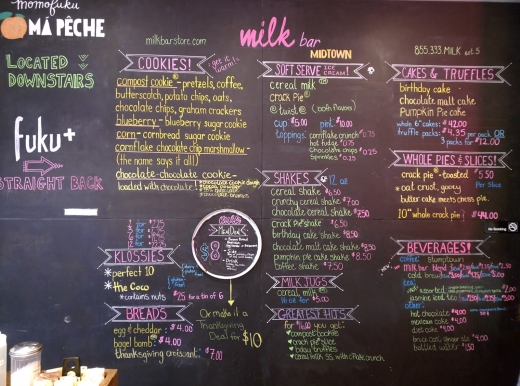 momofuku
MÁ PÊCHE
LOCATED
DOWNSTAIRS
fuku+
STRAIGHT BACK
milkbarstore.com
milk bar
MIDTOWN
855.333.MILK ext.5
COOKIES!
get it warm!
compost cookie® - pretzels, coffee,
butterscotch, potato chips, oats,
chocolate chips, graham crackers
blueberry - blueberry sugar cookie
corn - cornbread sugar cookie
cornflake chocolate chip marshmallow -
(the name says it all)
chocolate-chocolate cookie -
loaded with chocolate!
KLOSSIES
*perfect 10
*the Coco
*contains nuts $25 for a tin of 6
BREADS
egg & cheddar: $4.00
bagel bomb: $4.00
thanksgiving croissant: $7.00
Meal Deal
$8
Or make it a
Thanksgiving
Deal for $10
SOFT SERVE ICE CREAM!
cereal milk
crack pie®
@ twist @ (both flavors)
cup $5.00 pint: $10.00
toppings: cornflake crunch $0.75
hot fudge $0.75
chocolate chips $0.25
sprinkles $0.25
SHAKES 12 oz
cereal shake $6.50
crunchy cereal shake $7.00
chocolate cereal shake $7.50
crack pie shake $6.50
birthday cake shake $8.50
chocolate malt cake shake $8.50
pumpkin pie cake shake $8.50
coffee shake $7.50
MILK JUGS
cereal milk
16 oz for $5.00
GREATEST HITS
you get:
compost cookie
crack pie slice
b'day truffles
cereal milk SS with c'flake crunch
CAKES & TRUFFLES
birthday cake
chocolate malt cake
Pumpkin Pie cake
whole 6" cakes: $42.00
truffle packs: $4.35 per pack OR
3 packs for $12.00
WHOLE PIES & SLICES!
crack pie® - toasted
oat crust, gooey
butter cake meets chess pie.
5.50
Per Slice
10" whole crack pie: $44.00
BEVERAGES!
coffee: stumptown
milk bar blend
hot chocolate $4.00